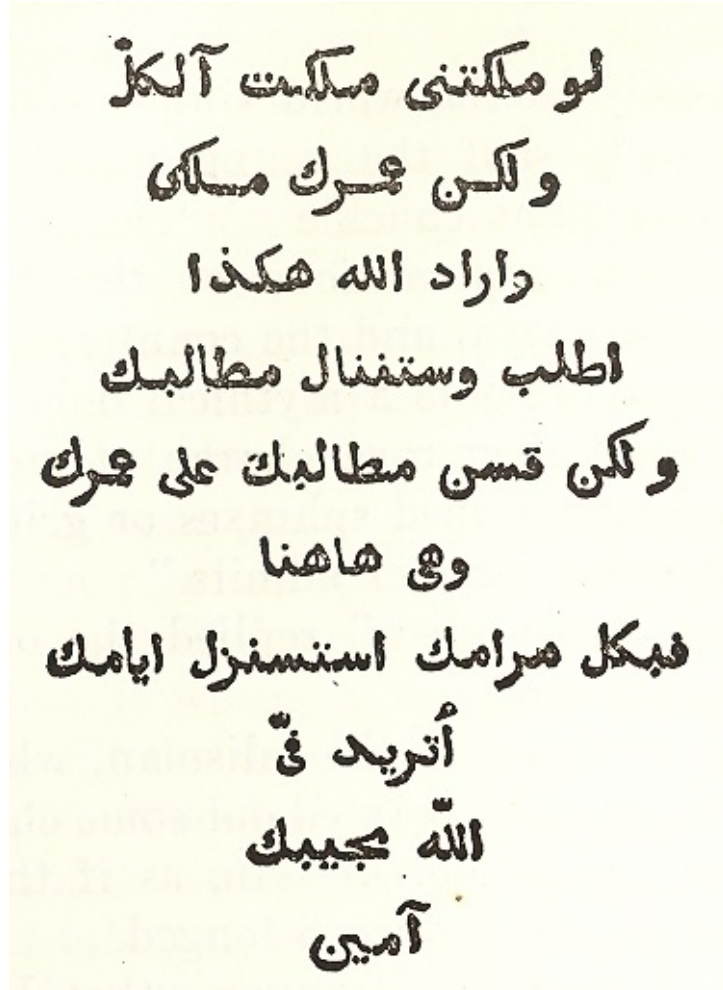 لو ملكتنى ملكت آلكلّ
ولكن عمرك ملكى
واراد الله هكذا
اطلب وستننال مطالبك
ولكن قسن مطالبك على عمرك
وهى هاهنا
فبكل مرامك استسنزل ايامك
أُتريد فىّ
اللّه مجيبك
آمين